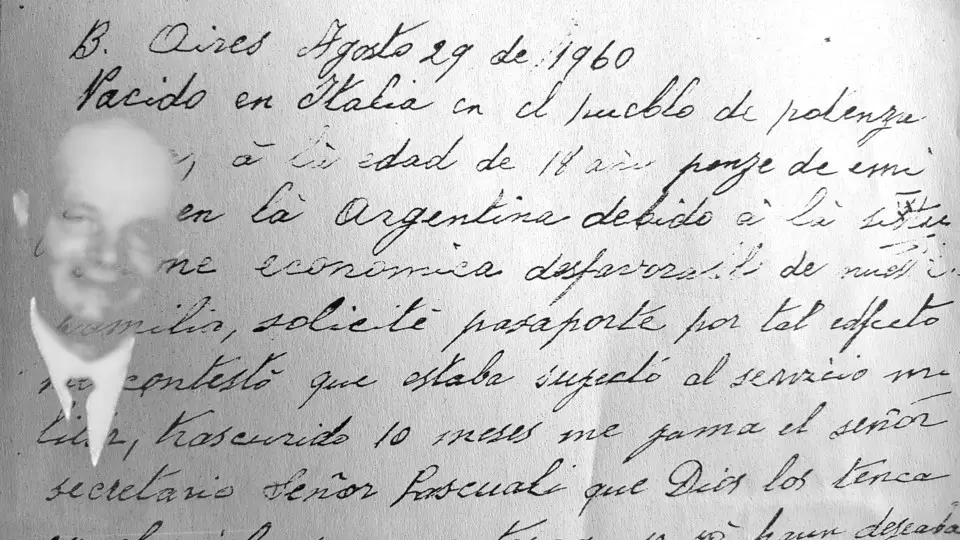 B. Aires Agosto 29 de 1960
Nacido en Italia en el pueblo de potenza
à là edad de 18 ponze de emi
en là Argentina debido à là
economica de
familia, solicité pasaporte por tal
contestó que estaba sujectó al servicio mi
litar, trascurido 10 meses me jama el señor
secretario Señor Pascuali que Dios los tenca
deseaba